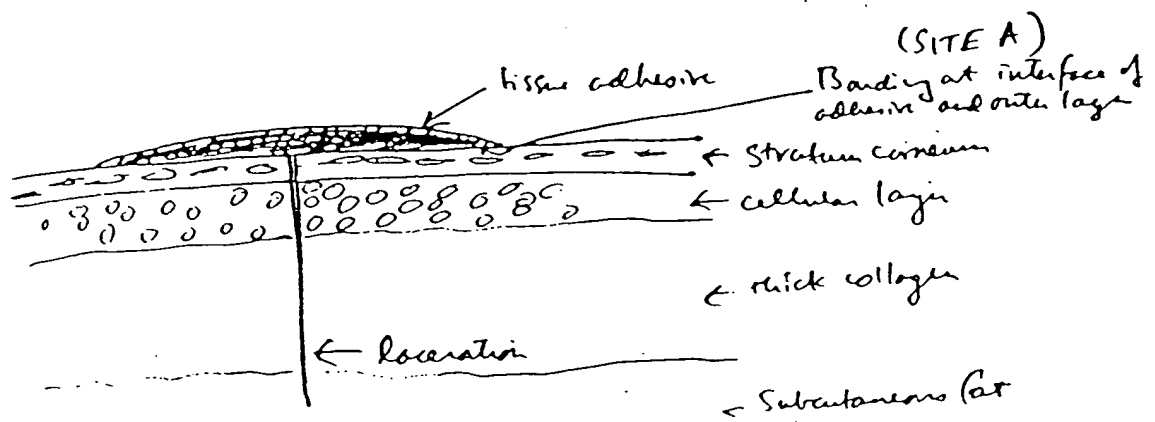 (SITE A)
tissue adhesive
Bonding at interface of
adhesive and outer layer
← Stratum corneum
← cellular layer
← thick collagen
← laceration
← Subcutaneous fat